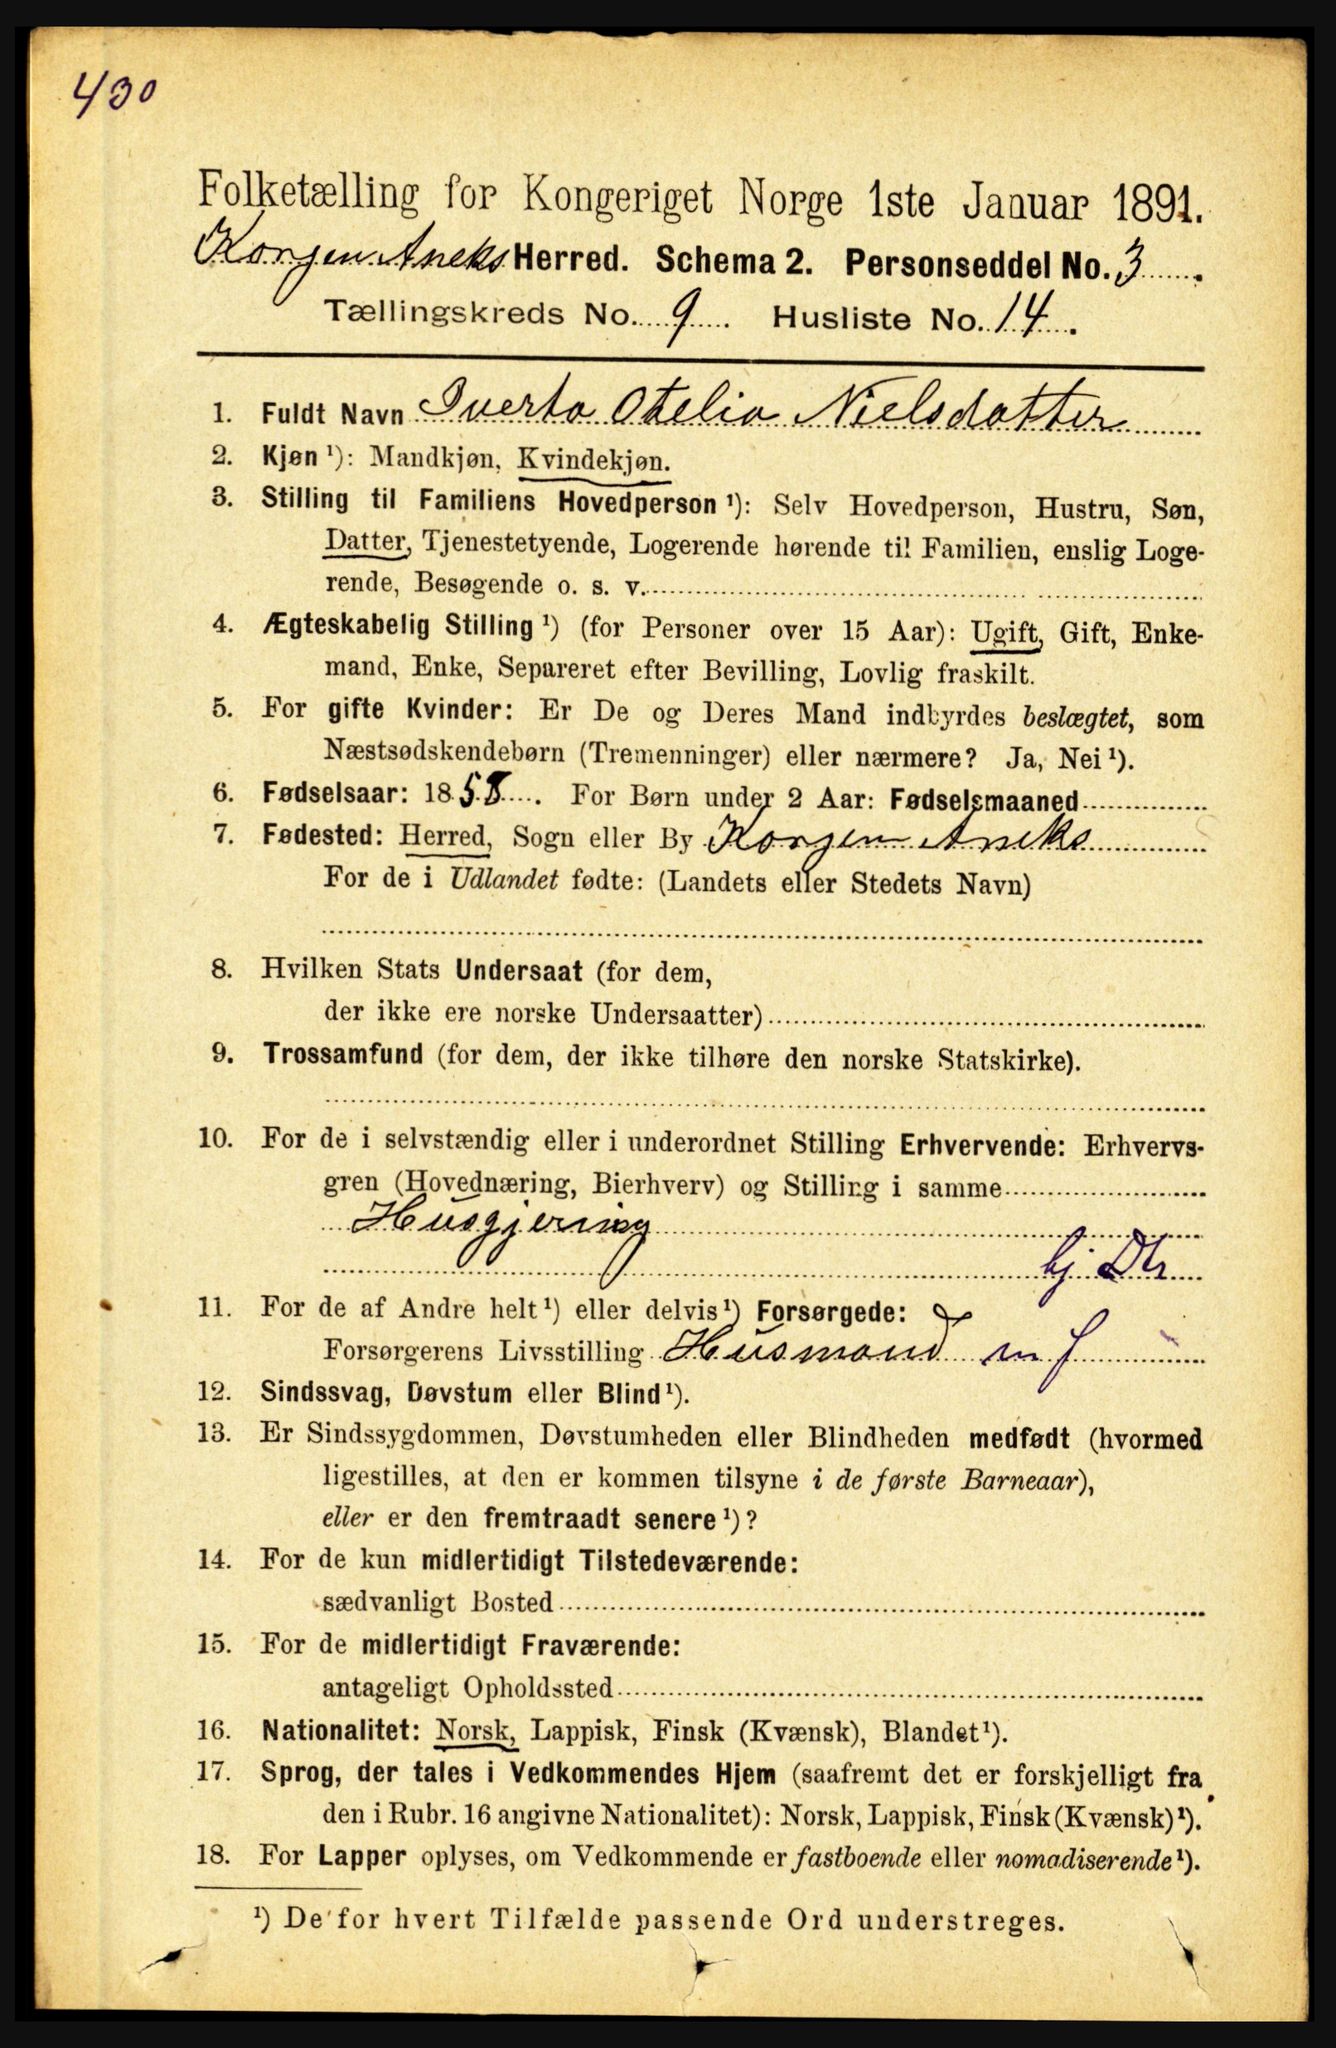 430
Folketælling for Kongeriget Norge 1ste Januar 1891.
Korgen Aneks Herred. Schema 2. Personseddel No. 3.
Tællingskreds No. 9. Husliste No. 14.
1. Fuldt Navn Iverta Otelia Nielsdatter
2. Kjøn ¹): Mandkjøn, Kvindekjøn.
3. Stilling til Familiens Hovedperson ¹): Selv Hovedperson, Hustru, Søn,
Datter, Tjenestetyende, Logerende hørende til Familien, enslig Loge-
rende, Besøgende o. s. v.
4. Ægteskabelig Stilling ¹) (for Personer over 15 Aar): Ugift, Gift, Enke-
mand, Enke, Separeret efter Bevilling, Lovlig fraskilt.
5. For gifte Kvinder: Er De og Deres Mand indbyrdes beslægtet, som
Næstsødskendebørn (Tremenninger) eller nærmere? Ja, Nei ¹).
6. Fødselsaar: 1858. For Børn under 2 Aar: Fødselsmaaned
7. Fødested: Herred, Sogn eller By Korgen Aneks
For de i Udlandet fødte: (Landets eller Stedets Navn)
8. Hvilken Stats Undersaat (for dem,
der ikke ere norske Undersaatter)
9. Trossamfund (for dem, der ikke tilhøre den norske Statskirke).
10. For de i selvstændig eller i underordnet Stilling Erhvervende: Erhvervs-
gren (Hovednæring, Bierhverv) og Stilling i samme
Husgjerning
hj Dtr
11. For de af Andre helt ¹) eller delvis ¹) Forsørgede:
Forsørgerens Livsstilling Husmand m f
12. Sindssvag, Døvstum eller Blind ¹).
13. Er Sindssygdommen, Døvstumheden eller Blindheden medfødt (hvormed
ligestilles, at den er kommen tilsyne i de første Barneaar),
eller er den fremtraadt senere ¹)?
14. For de kun midlertidigt Tilstedeværende:
sædvanligt Bosted
15. For de midlertidigt Fraværende:
antageligt Opholdssted
16. Nationalitet: Norsk, Lappisk, Finsk (Kvænsk), Blandet ¹).
17. Sprog, der tales i Vedkommendes Hjem (saafremt det er forskjelligt fra
den i Rubr. 16 angivne Nationalitet): Norsk, Lappisk, Finsk (Kvænsk) ¹).
18. For Lapper oplyses, om Vedkommende er fastboende eller nomadiserende ¹).
¹) De for hvert Tilfælde passende Ord understreges.